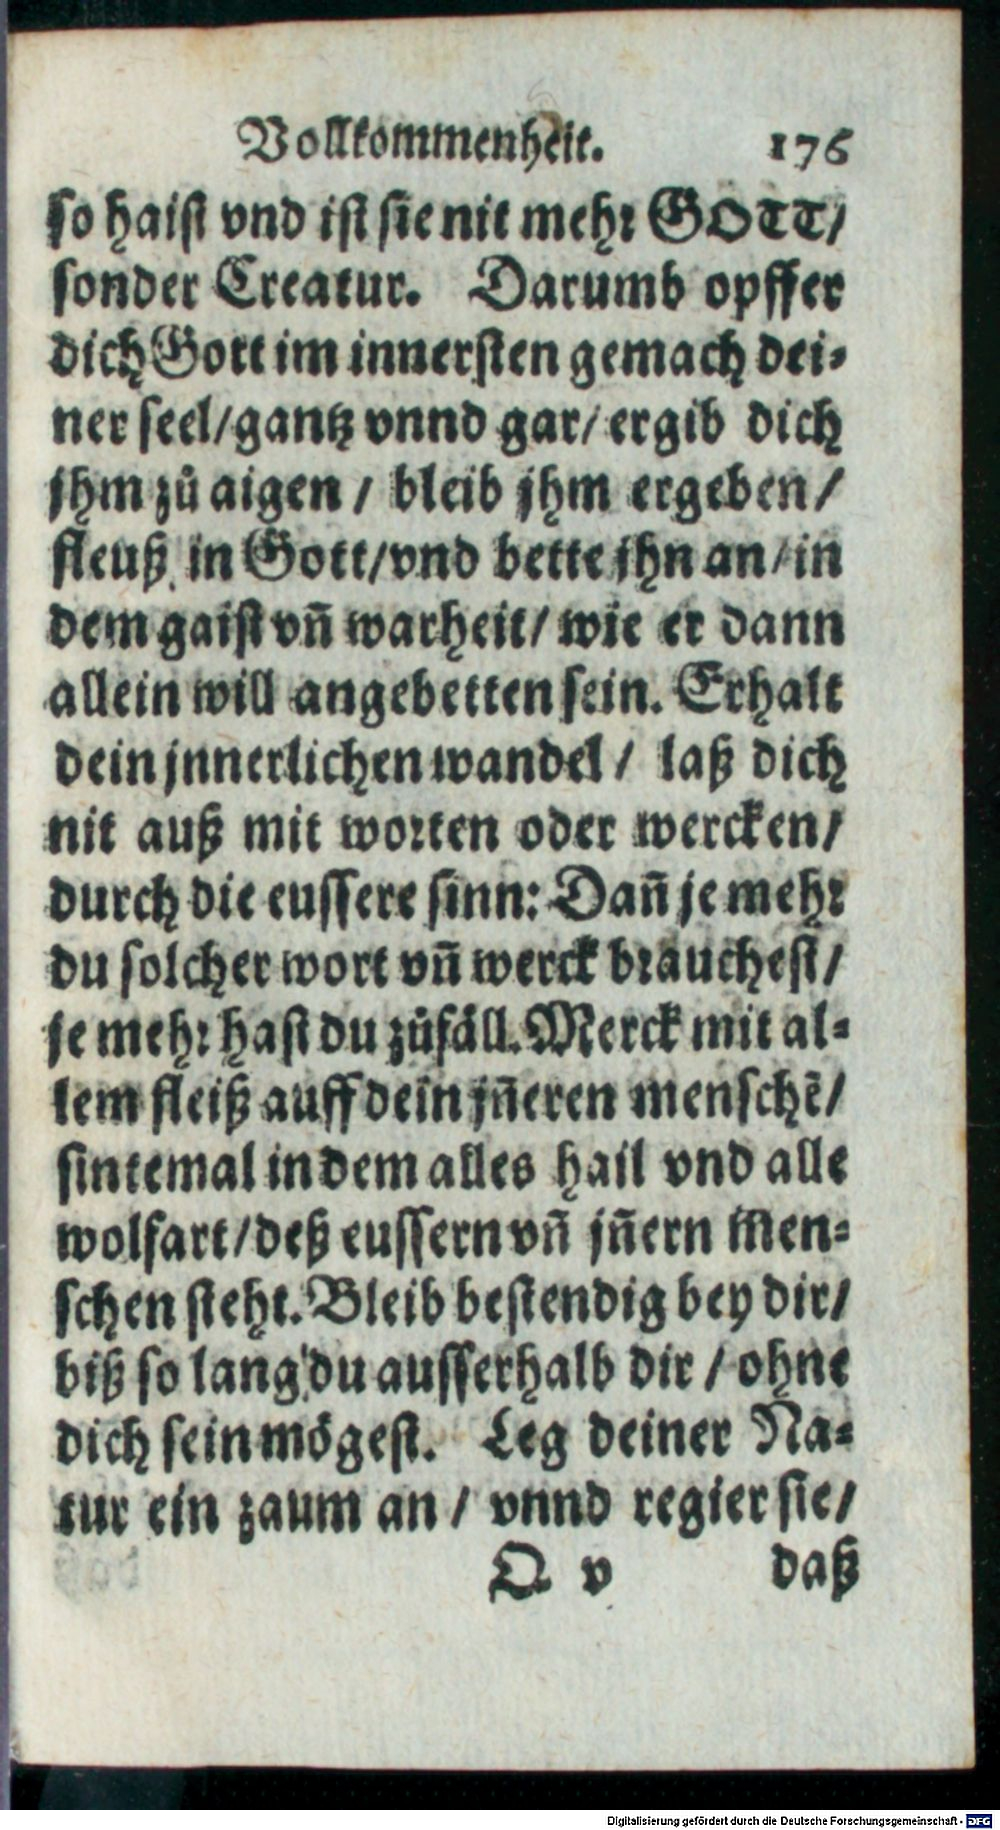 Vollkommenheit. 176
so haist vnd ist sie nit mehr GOTT/
sonder Creatur. Darumb opffer
dich Gott im innersten gemach dei-
ner seel/gantz vnnd gar/ ergib dich
jhm zů aigen / bleib jhm ergeben/
fleuß in Gott/vnd bette jhn an/in
dem gaist vñ warheit/ wie er dann
allein will angebetten sein. Erhalt
dein jnnerlichen wandel / laß dich
nit auß mit worten oder wercken/
durch die eussere sinn: Dañ je mehr
du solcher wort vñ werck brauchest/
je mehr hast du zůfäll. Merck mit al-
lem fleiß auff dein jñeren menschẽ/
sintemal in dem alles hail vnd alle
wolfart/deß eussern vñ jñern men-
schen steht. Bleib bestendig bey dir/
biß so lang du ausserhalb dir / ohne
dich sein mögest. Leg deiner Na-
tur ein zaum an / vnnd regier sie/
Q v daß
Digitalisierung gefördert durch die Deutsche Forschungsgemeinschaft - DFG